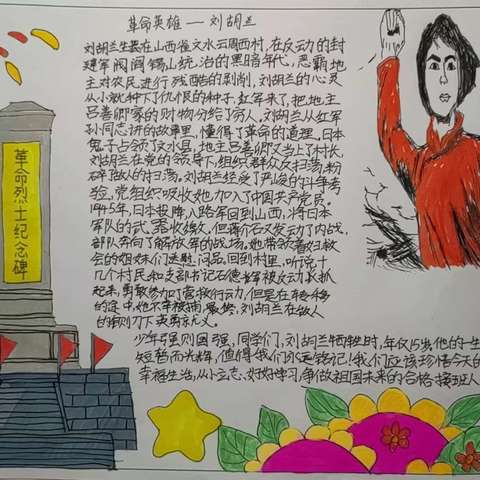 革命英雄——刘胡兰
刘胡兰生长在山西省文水云周西村，在反动的封
建军阀阎锡山统治的黑暗年代，恶霸地
主对农民进行残酷的剥削，刘胡兰的心灵
从小就种下了仇恨的种子，红军来了，把地主
吕善卿家的财物分给了穷人，刘胡兰从红军
孙同志讲的故事里，懂得了革命的道理，日本
鬼子占领了文水县，地主吕善卿又当上了村长，
刘胡兰在党的领导下，组织群众反扫荡，粉
碎敌人的扫荡。刘胡兰经受了严峻的斗争考
验，党组织吸收她加入了中国共产党员。
1945年，日本投降，八路军回到山西，将日本
军队的武器收缴，但蒋介石又发动了内战，
部队奔向了解放军的战场。她带领着妇救
会的姐妹们送慰问品，回到村里，听说十
几个村民和支部书记石德辉被反动派抓
起来，勇敢参加了营救行动，但是在转移
的途中，她不幸被捕，最终，刘胡兰在敌人
的铡刀下英勇就义。
少年强则国强，同学们，刘胡兰牺牲时，年仅15岁，他的一生
短暂而光辉，值得我们永远铭记！我们应该珍惜今天的
幸福生活，从小立志、好好学习，争做祖国未来的合格接班人
革命烈士纪念碑